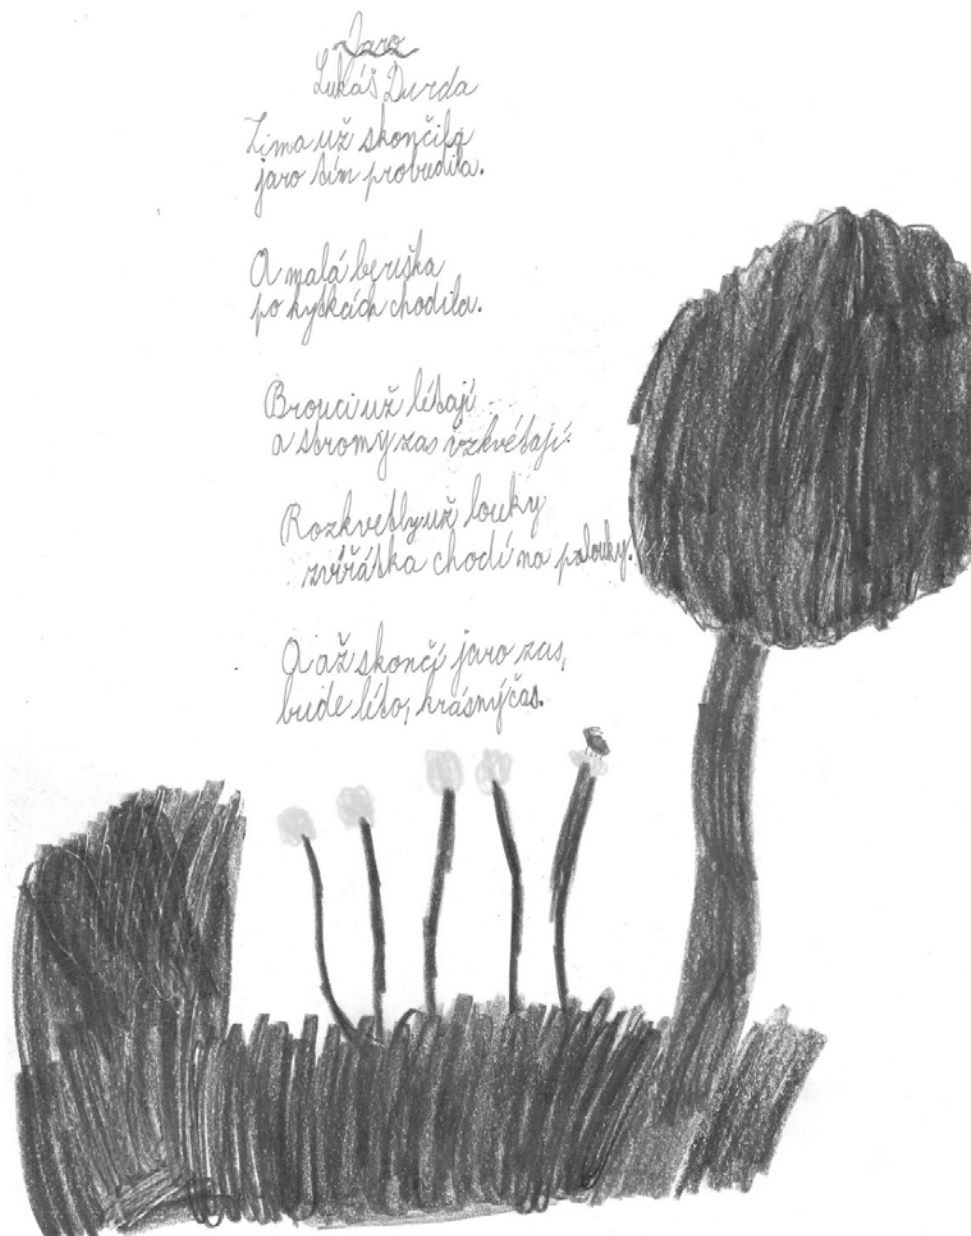 Jaro
Lukáš Durda
Zima už skončila
jaro tím probudila.
A malá beruška
po kytkách chodila.
Brouci už létají
a stromy zas vzkvétají.
Rozkvetly už louky
zvířátka chodí na palouky.
A až skončí jaro zas,
bude léto, krásný čas.